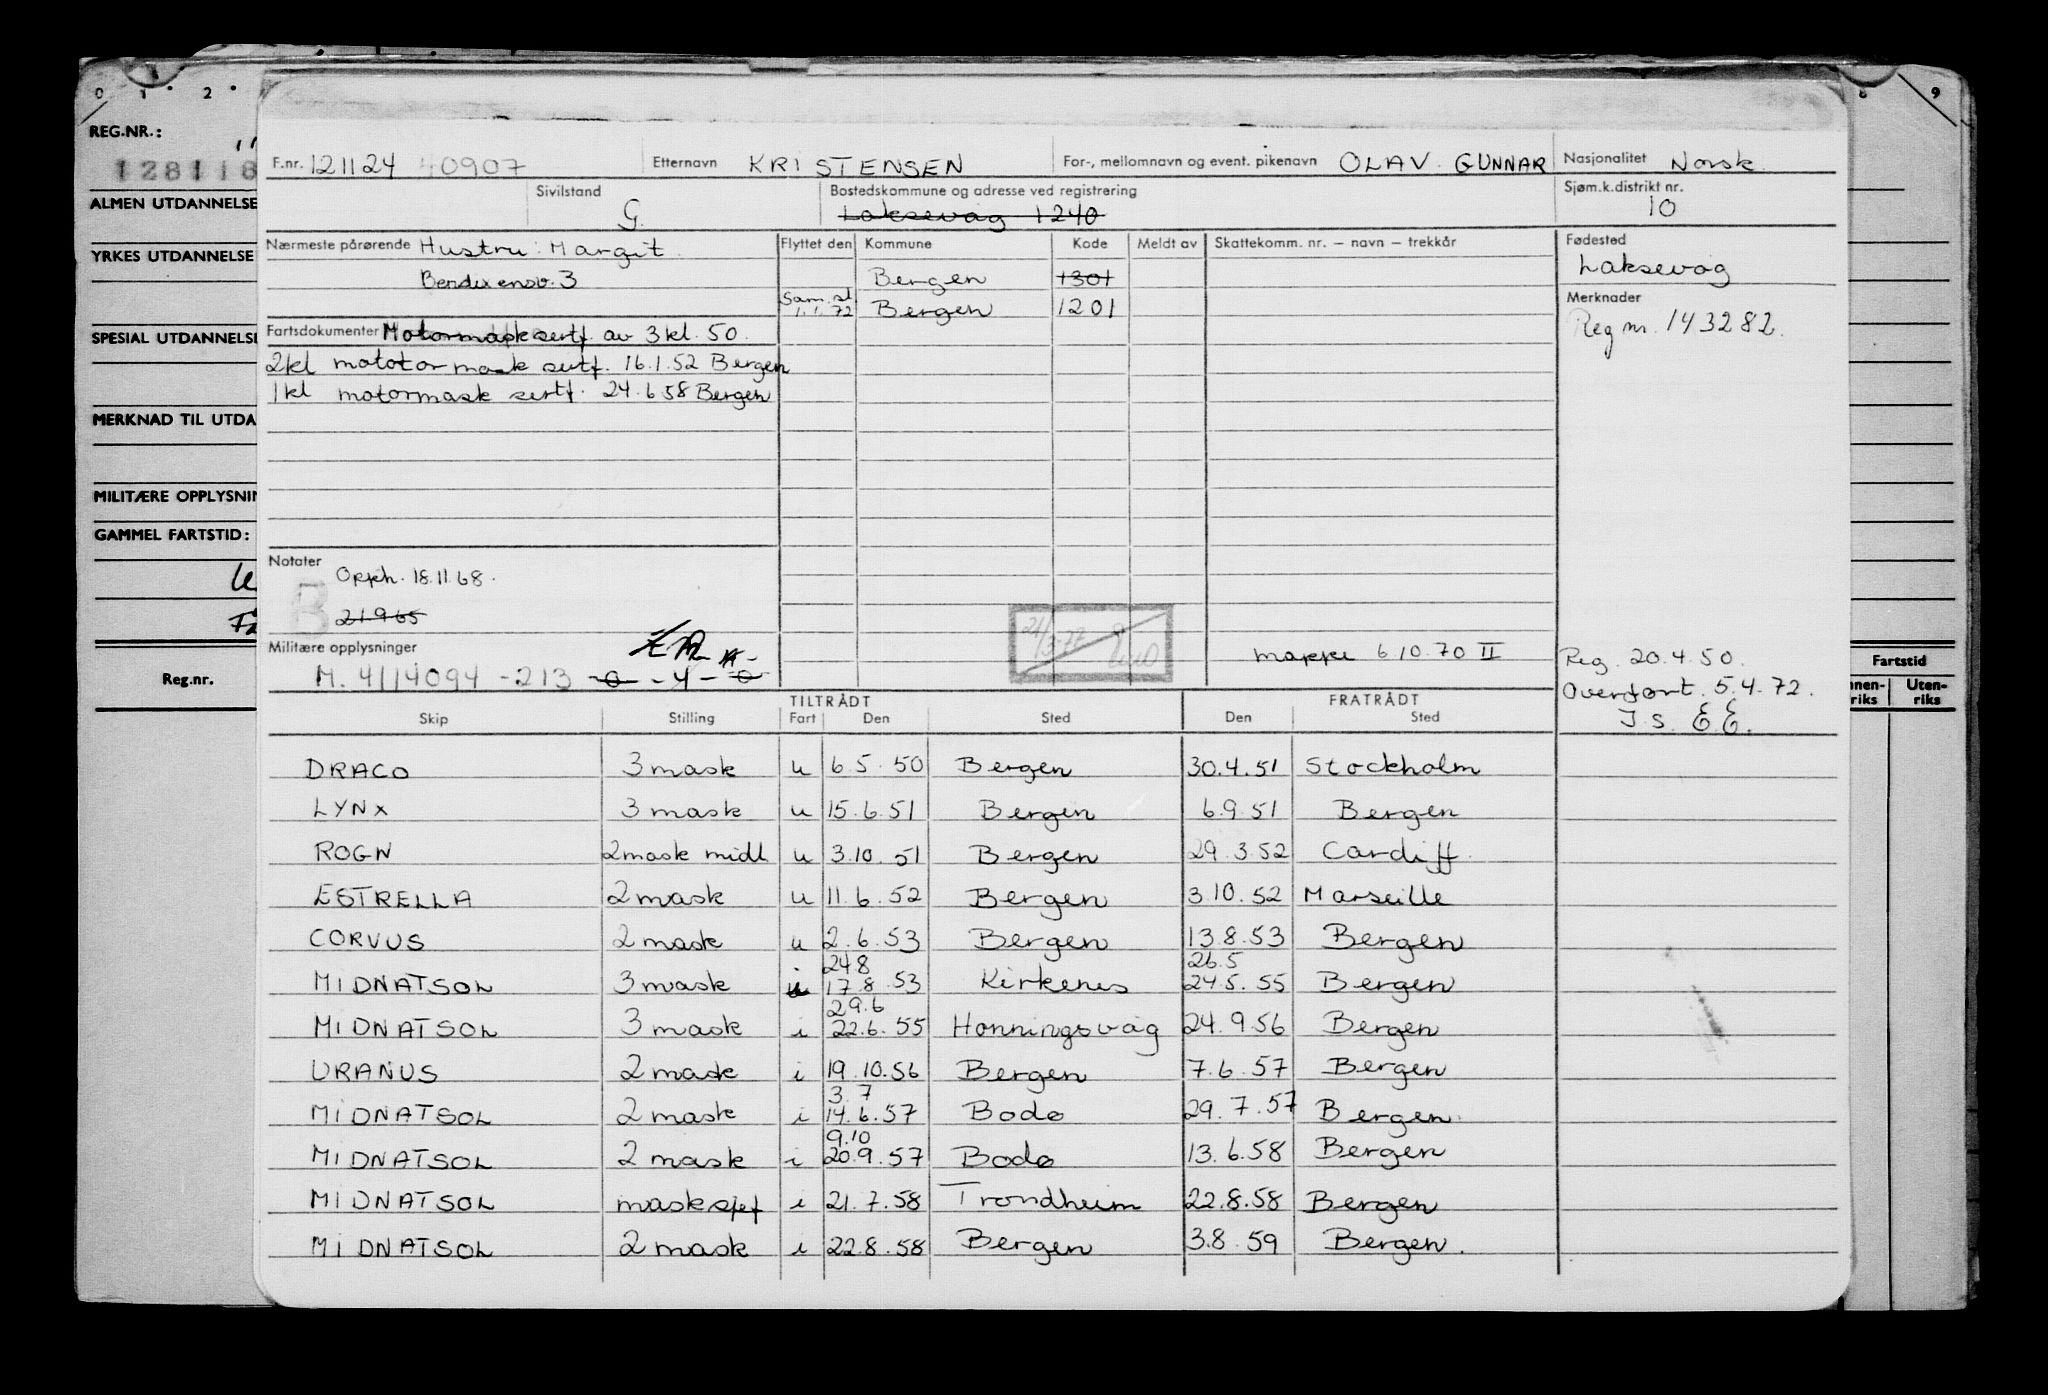 0 1 2 8 9
REG.NR.:
128118
ALMEN UTDANNELSE
YRKES UTDANNELSE
SPESIAL UTDANNELSE
MERKNAD TIL UTDA
MILITÆRE OPPLYSNIN
GAMMEL FARTSTID:
Reg.nr.
Fartstid
nnen-riks Uten-riks
F.nr. 121124 40907 Etternavn KRISTENSEN For-, mellomnavn og event. pikenavn OLAV GUNNAR Nasjonalitet Norsk
Sivilstand G. Bostedskommune og adresse ved registrering Laksevåg 1240 Sjøm.k.distrikt nr. 10
Nærmeste pårørende Hustru: Margit Flyttet den Kommune Kode Meldt av Skattekomm. nr. – navn – trekkår Fødested
Laksevåg
Bendixensv. 3 Bergen 1301
Merknader
Sam. st. 1.1.72 Bergen 1201
Reg nr. 143282.
Fartsdokumenter Motormask sertf. av 3 kl. 50.
2kl mototor mask sertf. 16.1.52 Bergen
1kl motormask sertf. 24.6.58 Bergen
Notater Opph. 18.11.68.
B 21965
Militære opplysninger
M. 4114094 -213 -0- -4- -0-
21/3-77
makke 6.10.70 II
Reg. 20.4.50.
Overført. 5.4.72.
I s. E E.
TILTRÅDT FRATRÅDT
Skip Stilling Fart Den Sted Den Sted
DRACO 3 mask u 6.5.50 Bergen 30.4.51 Stockholm
LYNX 3 mask u 15.6.51 Bergen 6.9.51 Bergen
ROGN 2mask midl u 3.10.51 Bergen 29.3.52 Cardiff
ESTRELLA 2 mask u 11.6.52 Bergen 3.10.52 Marseille
CORVUS 2 mask u 2.6.53 Bergen 13.8.53 Bergen
24.8 26.5
MIDNATSOL 3 mask i 17.8.53 Kirkenes 24.5.55 Bergen
29.6
MIDNATSOL 3 mask i 22.6.55 Honningsvåg 24.9.56 Bergen
URANUS 2 mask i 19.10.56 Bergen 7.6.57 Bergen
3.7
MIDNATSOL 2 mask i 14.6.57 Bodø 29.7.57 Bergen
9.10
MIDNATSOL 2 mask i 20.9.57 Bodø 13.6.58 Bergen
MIDNATSOL masksjef i 21.7.58 Trondheim 22.8.58 Bergen
MIDNATSOL 2 mask i 22.8.58 Bergen 3.8.59 Bergen.